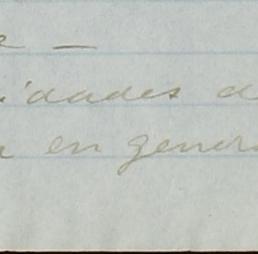 e —
idades d
a en gener